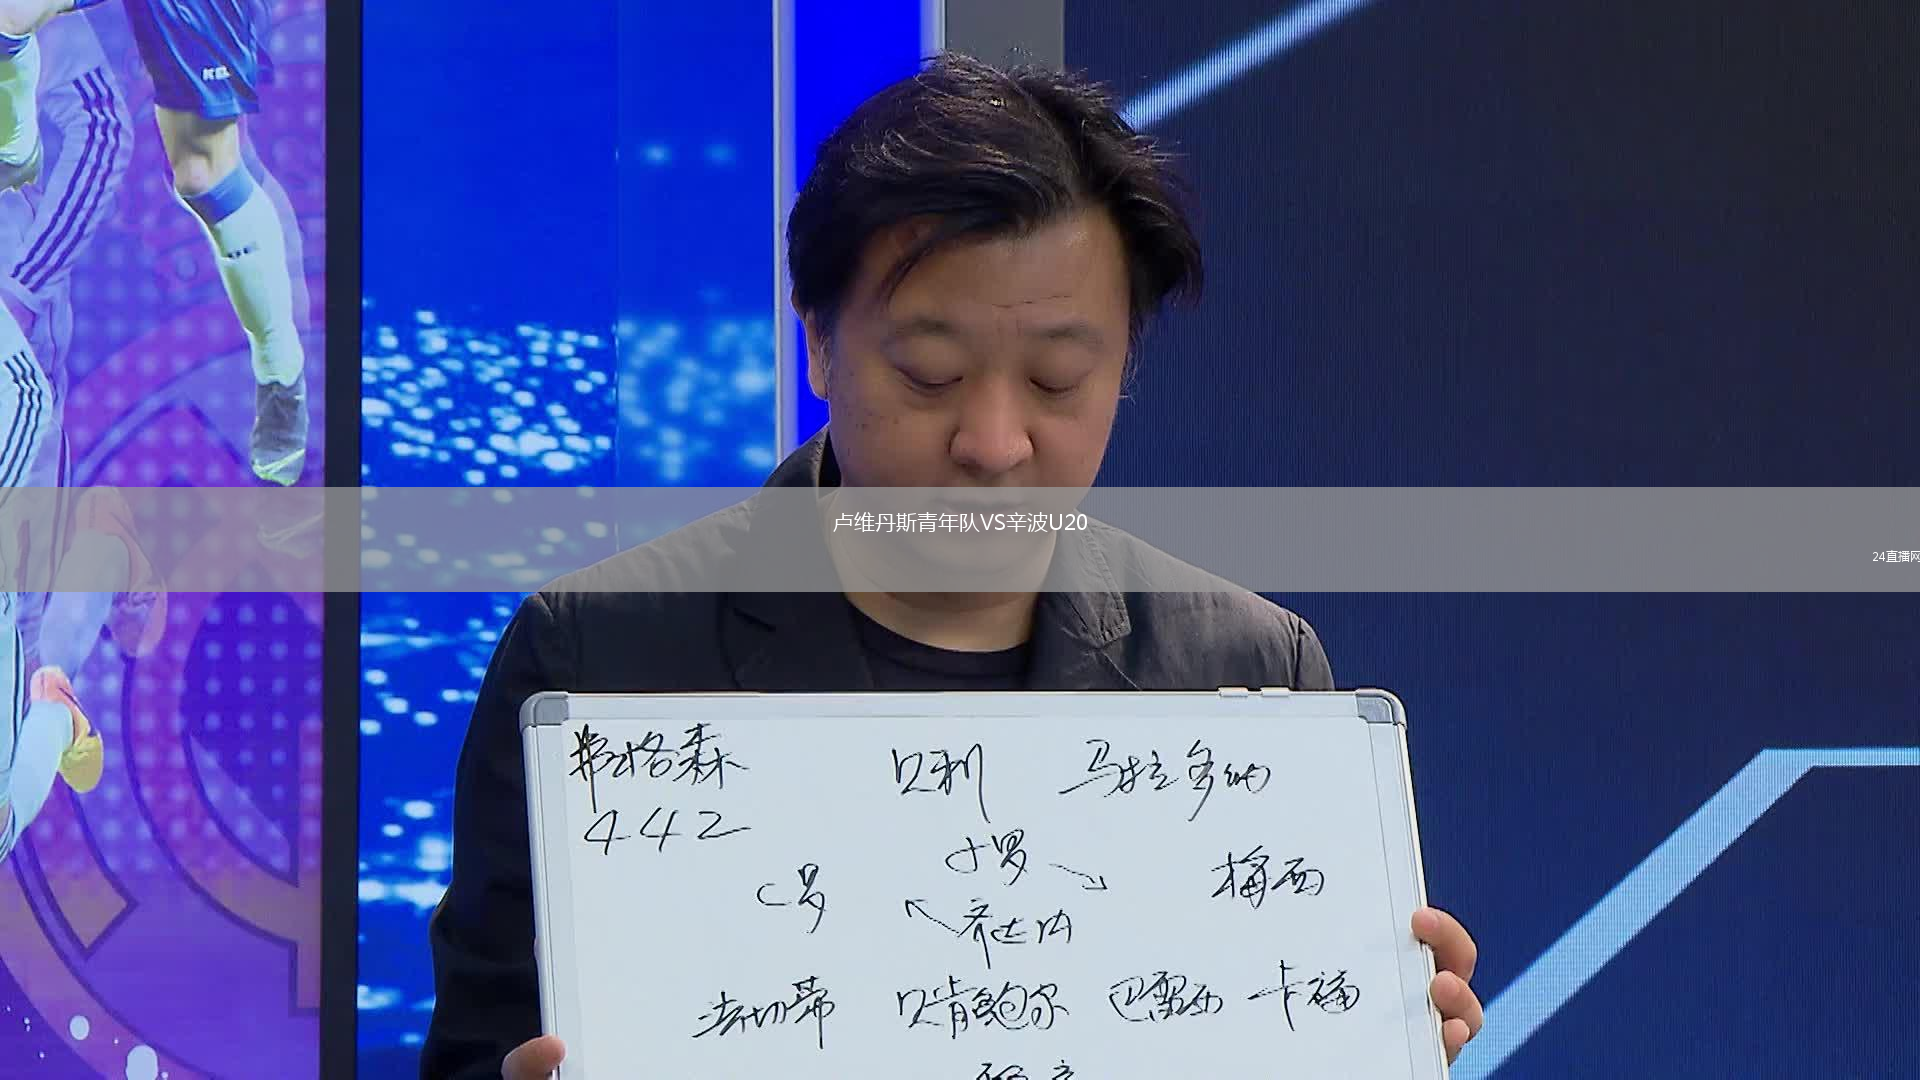 卢维丹斯青年队VS辛波U20
24直播网
弗格森 贝利 马拉多纳
442
小罗
C罗 梅西
齐达内
法切蒂 贝肯鲍尔 巴雷西 卡福